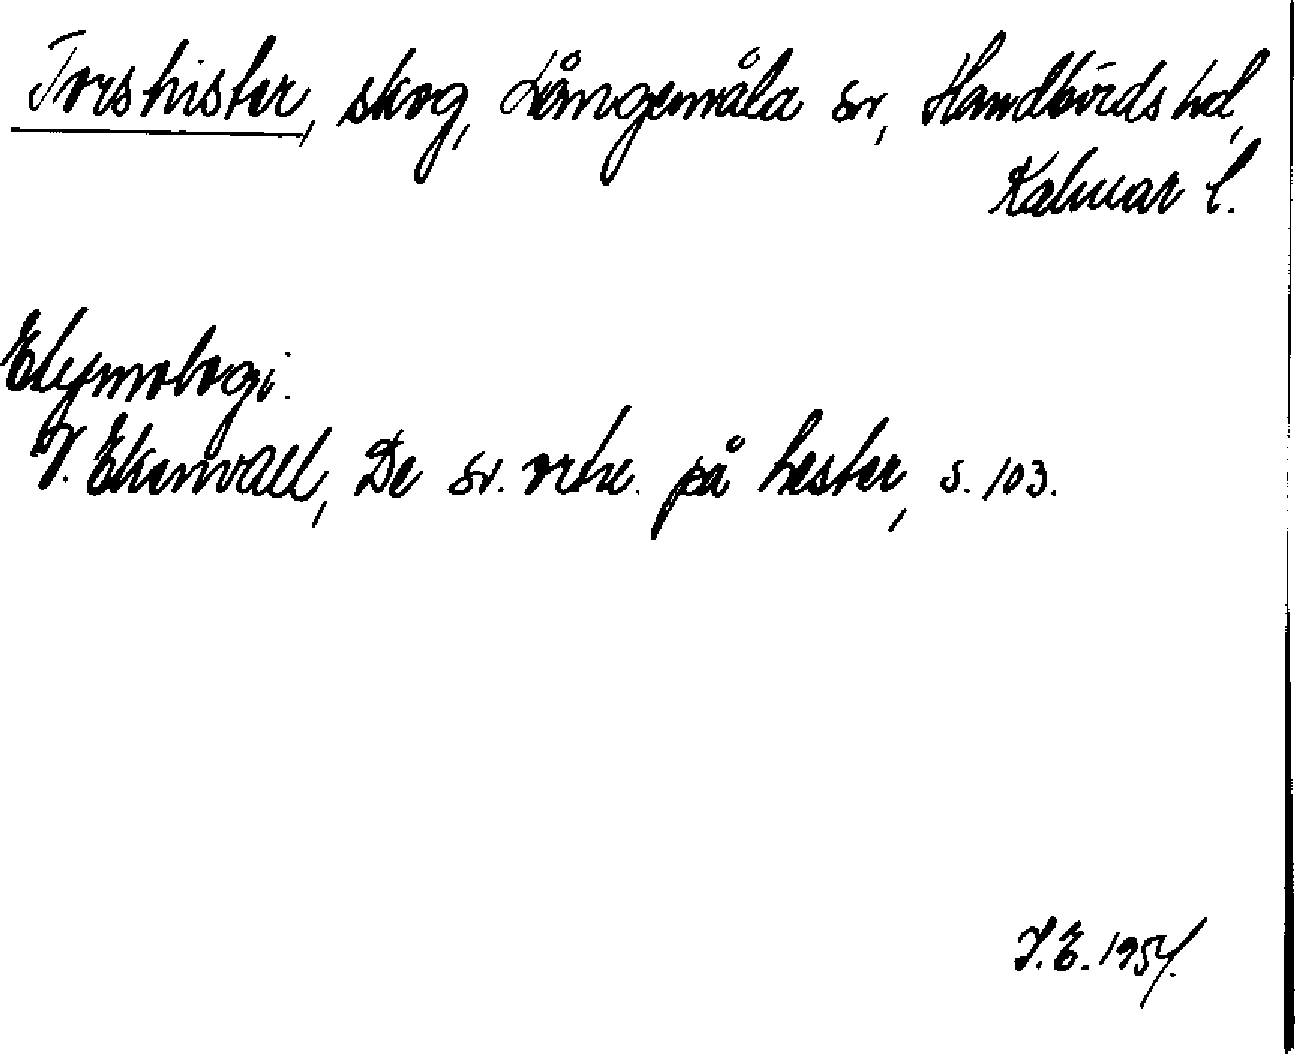 Torshister, skog, Långemåla sn, Handbörds hd,
Kalmar l.
Etymologi.
V. Ekenvall, De sv. ortn. på hester, s. 103.
V.E. 1954.